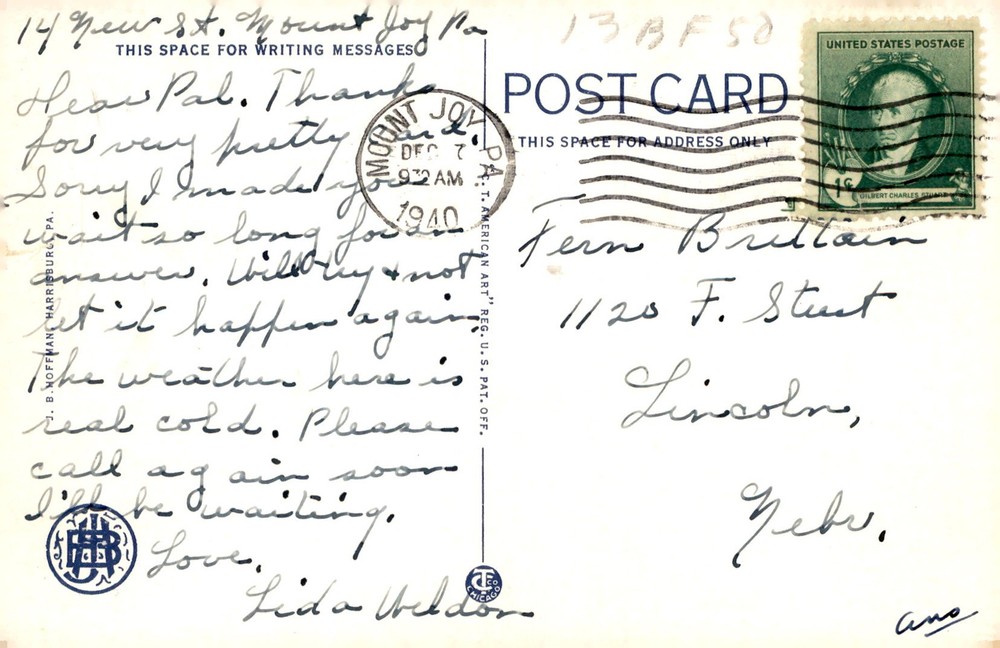 14 New St. Mount Joy Pa
THIS SPACE FOR WRITING MESSAGES
Dear Pal. Thanks
for very pretty card.
Sorry I made you
wait so long for an
answer. Will try & not
let it happen again.
The weather here is
real cold. Please
call again soon
I'll be waiting.
Love,
Lida Weldon
J. B. HOFFMAN, HARRISBURG, PA.
MOUNT JOY PA.
DEC 7
9 AM
1940
C.T. AMERICAN ART" REG. U.S. PAT. OFF.
CT CO CHICAGO
13BF50
POST CARD
THIS SPACE FOR ADDRESS ONLY
UNITED STATES POSTAGE
1¢
GILBERT CHARLES STUART
Fern Brittain
1120 F. Street
Lincoln,
Nebr.
ans